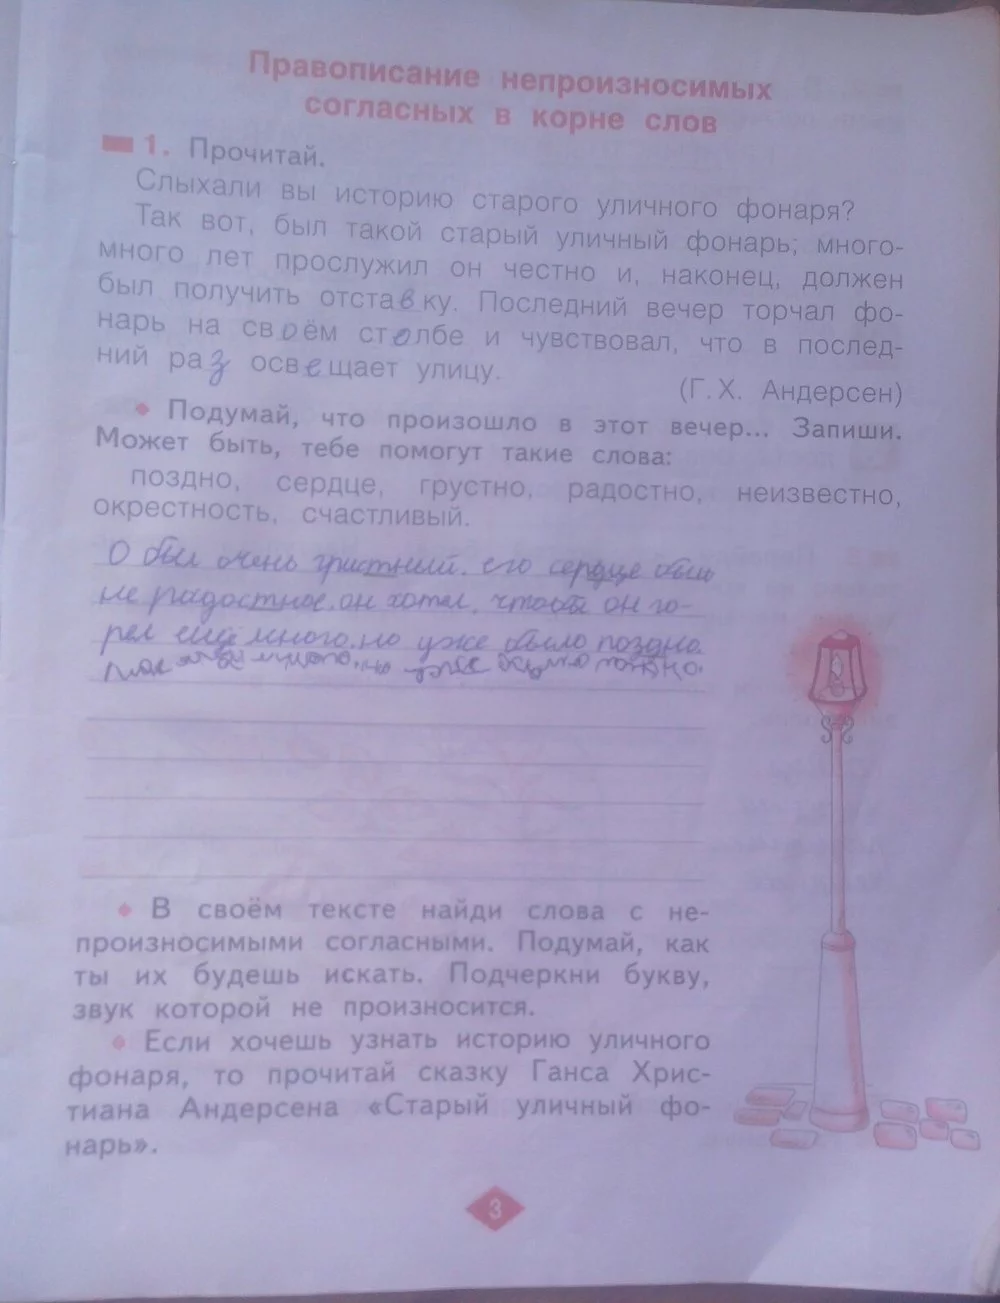 Правописание непроизносимых
согласных в корне слов
1. Прочитай.
Слыхали вы историю старого уличного фонаря?
Так вот, был такой старый уличный фонарь; много-
много лет прослужил он честно и, наконец, должен
был получить отставку. Последний вечер торчал фо-
нарь на своём столбе и чувствовал, что в послед-
ний раз освещает улицу.
(Г. Х. Андерсен)
Подумай, что произошло в этот вечер... Запиши.
Может быть, тебе помогут такие слова:
поздно, сердце, грустно, радостно, неизвестно,
окрестность, счастливый.
О был очень грустный. его сердце было
не радостное. он хотел, чтобы он го-
рел ещё много. но уже было поздно.
много. но уже было поздно.
В своём тексте найди слова с не-
произносимыми согласными. Подумай, как
ты их будешь искать. Подчеркни букву,
звук которой не произносится.
Если хочешь узнать историю уличного
фонаря, то прочитай сказку Ганса Хрис-
тиана Андерсена «Старый уличный фо-
нарь».
3